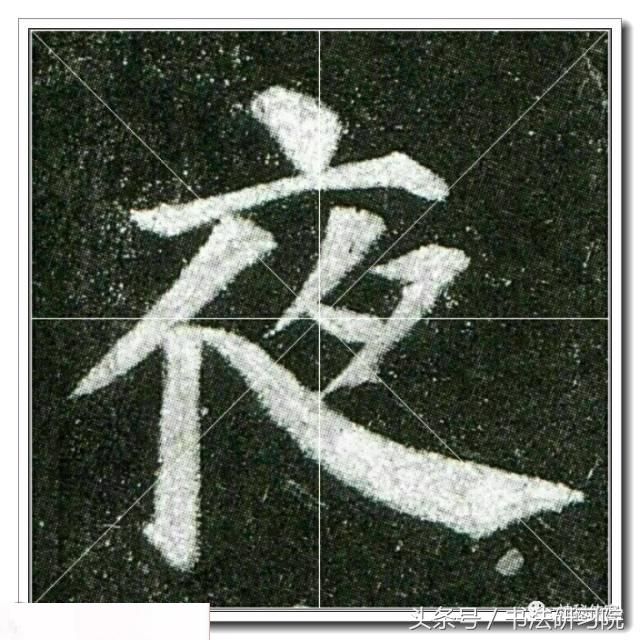 夜
头条号 / 书法研习院